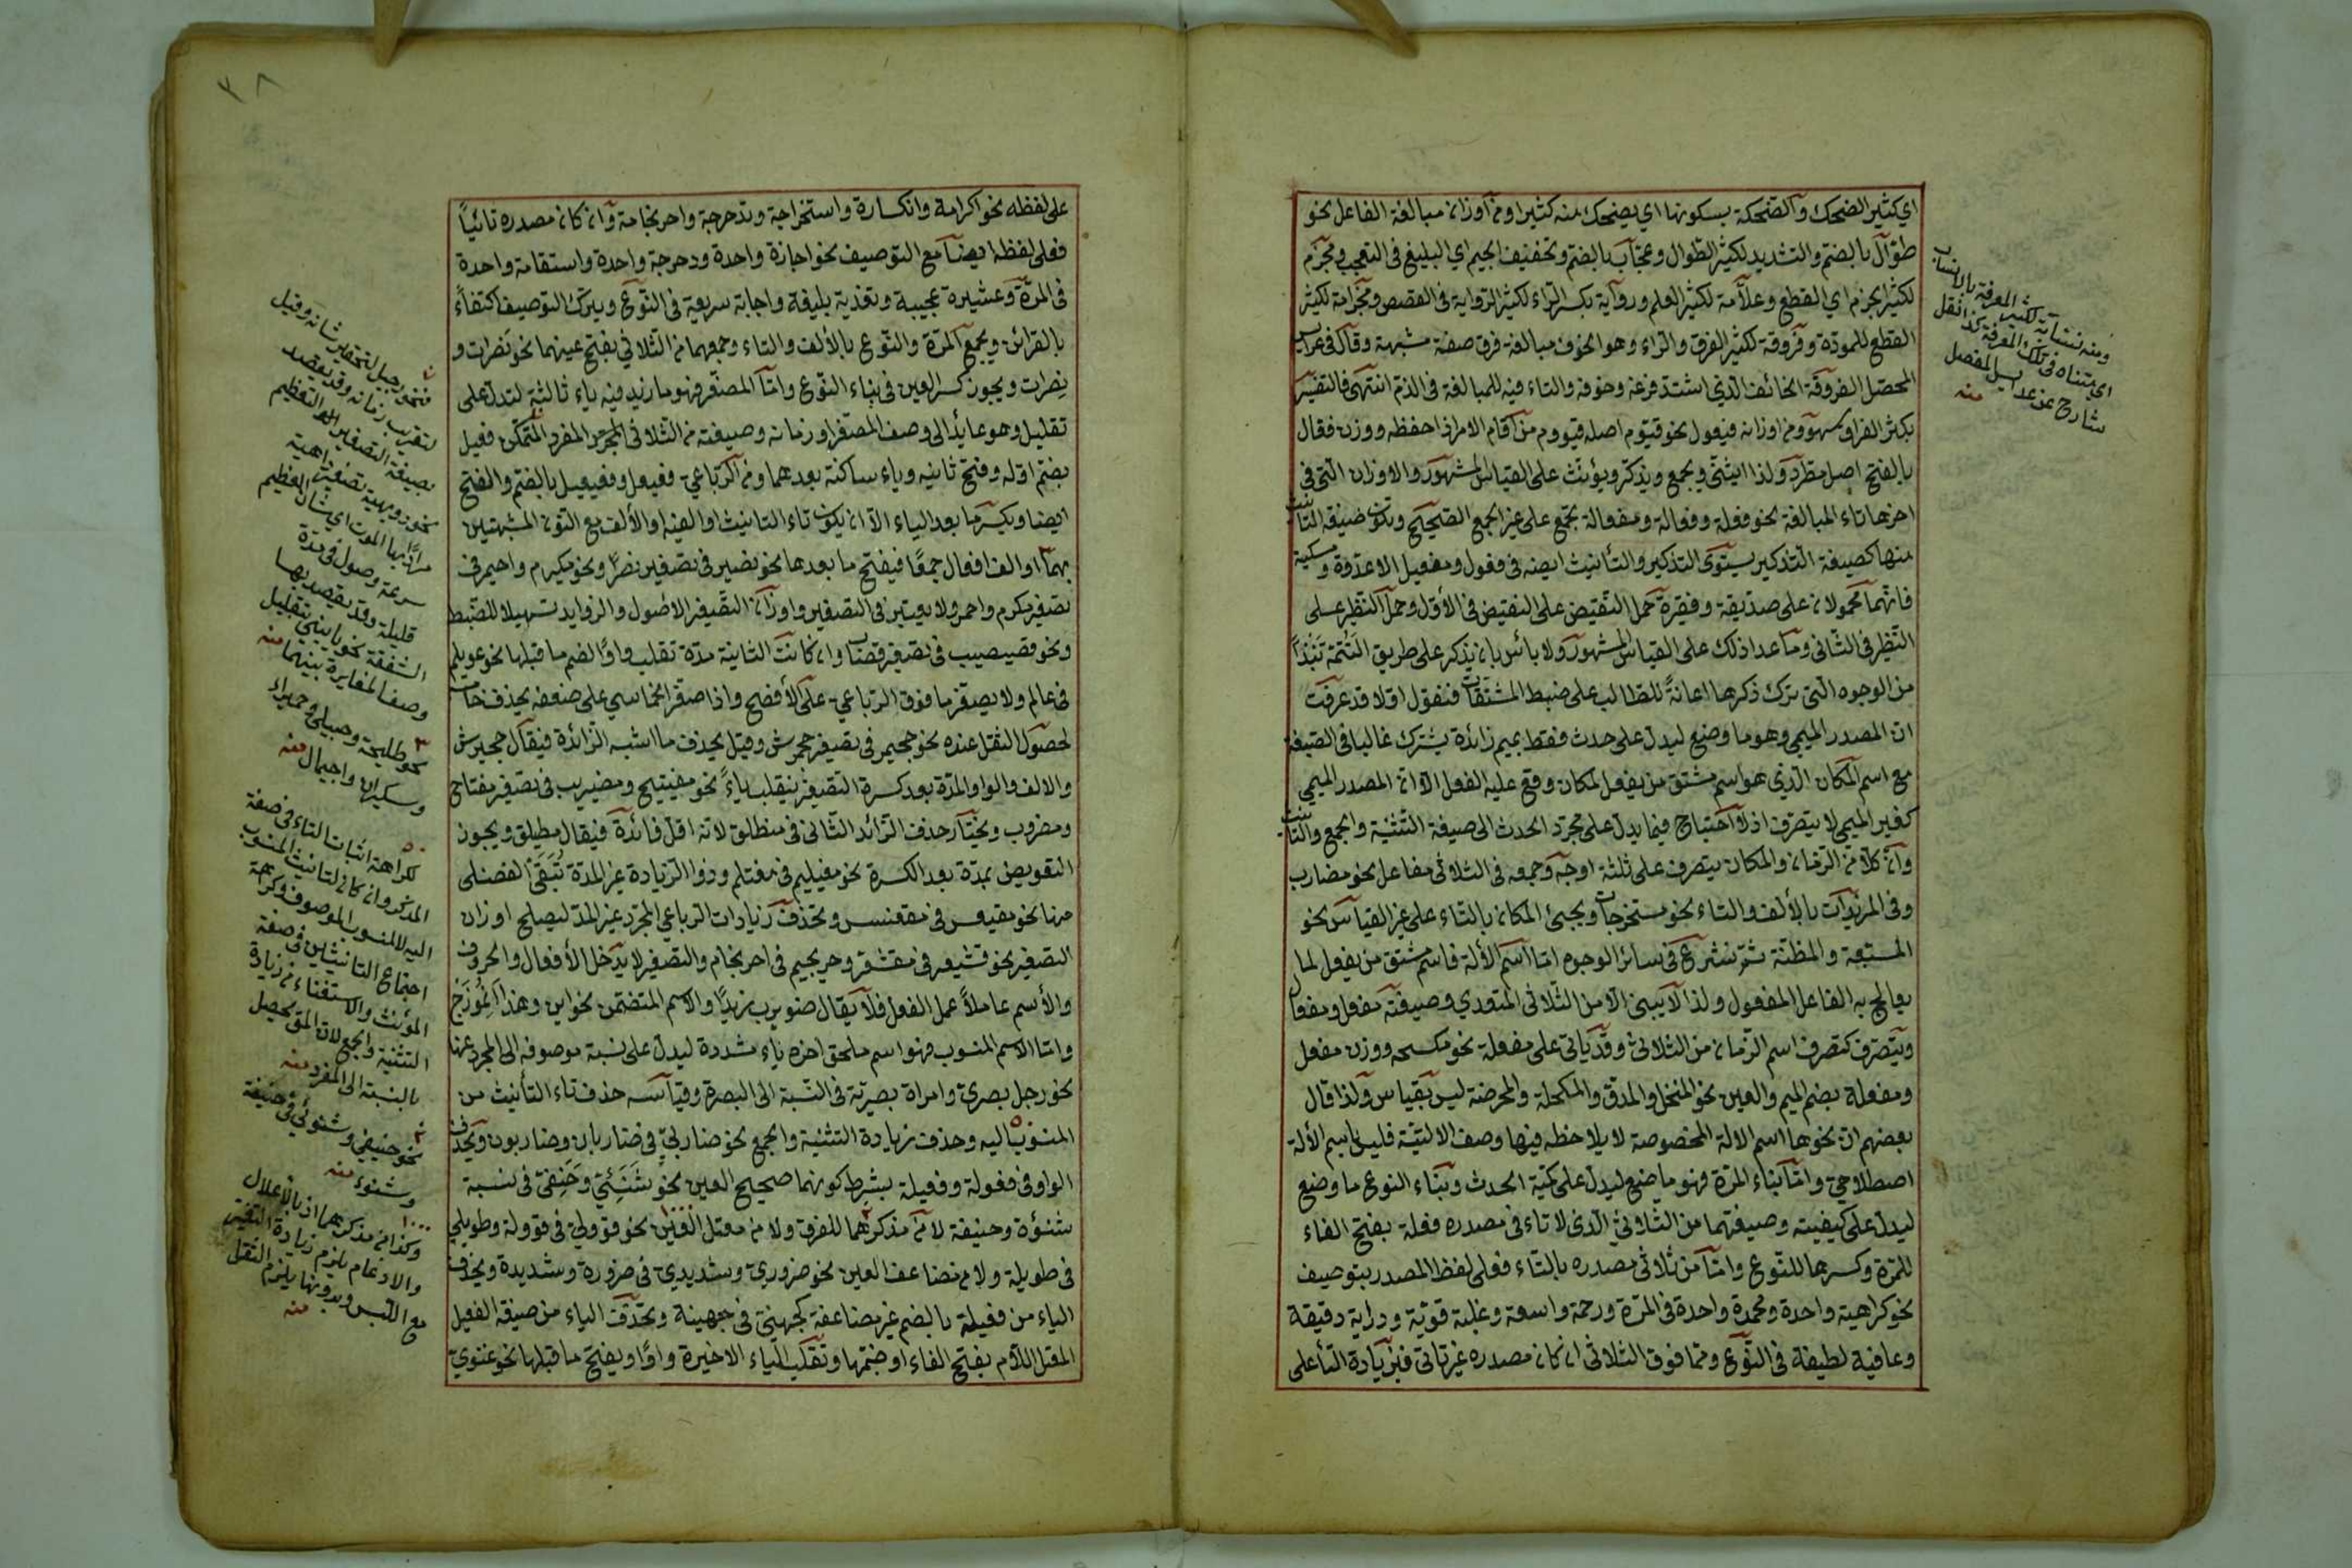 اي كثير الضحك والضحكة بسكونها اي يضحك منه كثيرا ومن اوزان مبالغة الفاعل نحو
طوّال بالضم والتشديد لكثير الطوال وعجاب بالضم وتخفيف الجيم اي البليغ في التعجب ومجزم
لكثير الجزم اي القطع وعلّامة لكثير العلم ورواية بكسر الراء لكثير الرواية في القصص ومجزامة لكثير
القطع للمودّة وفروقة لكثير الفرق والراء وهو الخوف مبالغة فرق صفة مشبهة وقال في عراب
المحصل الفروقة الخائف الذي اشتد فزعه وخوفه والتاء فيه للمبالغة في الذم انتهى فالتفسير
بكثير الفراو سهو ومن اوزانه فيعول نحو قيّوم اصله قيووم من اقام الامر اذا حفظه ووزن فعّال
بالفتح اصل مطرد ولذا يثنّى ويجمع ويذكر ويؤنث على القياس المشهور والاوزان التي في
اخرها تاء المبالغة نحو فعلة وفعالة ومفعالة تجمع على غير الجمع الصحيح وتكون صيغة التانيث
منها كصيغة التذكير يستوى التذكير والتأنيث ايضه في فعول ومفعيل الا عدوة ومسكينة
فانهما محمولان على صديقة وفقيرة حمل النقيض على النقيض في الاول وحمل النظير على
النظير في الثاني وما عدا ذلك على القياس المشهور ولا بأس بان يذكر على طريق التتمة نبذاً
من الوجوه التي ترك ذكرها اعانةً للطالب على ضبط المشتقات فنقول اولا قد عرفت
ان المصدر الميمي وهو ما وضع ليدل على حدث فقط بميم زائدة يشترك غالبا في الصيغة
مع اسم المكان الذي هو اسم مشتق من يفعل لمكان وقع عليه الفعل الا ان المصدر الميمي
كغير الميمي لا يتصرف اذ لا احتياج فيما يدل على مجرد الحدث الى صيغة التثنية والجمع والتانيث
وان كلا من الزمان والمكان يتصرف على ثلثة اوجه وجمعه في الثلاثي مفاعل نحو مضارب
وفي المزيدات بالألف والتاء نحو مستخرجات ويجئ المكان بالتاء على غير القياس نحو
المسبعة والمظنة ثم نشرع في سائر الوجوه اما اسم الألة فاسم مشتق من يفعل لما
يعالج به الفاعل المفعول ولذا لا يبنى الا من الثلاثي المتعدي وصيغته مفعل ومفعال
ويتصرف كتصرف اسم الزمان من الثلاثي وقد يأتي على مفعلة نحو مكسحه ووزن مفعل
ومفعلة بضم الميم والعين نحو المنخل والمدق والمكحلة والمحرضة ليس بقياس ولذا قال
بعضهم ان نحوها اسم الالة المخصوصة لا يلاحظه فيها وصف الاليّة فليس باسم الألة
اصطلاحي واما بناء المرة فهو ما ضع ليدل على كمية الحدث وبناء النوع ما وضع
ليدل على كيفيته وصيغتهما من الثلاثي الذى لا تاء في مصدره فعلة بفتح الفاء
للمرة وكسرها للنوع واما من ثلاثي مصدره بالتاء فعلى لفظ المصدر بتوصيف
نحو كراهية واحدة ومحمدة واحدة في المرة ورحمة واسعة وغلبة قوية ودراية دقيقة
وعافية لطيفة في النوع ومما فوق الثلاثي ان كان مصدره غير تائي فبزيادة التأ على
ومنه نسّابة لكثير المعرفة بالانساب
اي يتناه في تلك المعرفة كذا نقل
شارح عن عدا بل المفصل
منه
على لفظه نحو اكرامة وانكسارة واستخراجة وتدحرجة واحرنجامة وان كان مصدره تائياً
فعلى لفظه ايضا مع التوصيف نحو اجازة واحدة ودحرجة واحدة واستقامة واحدة
في المرة وعشيرة عجيبة وتغذية بليغة واجابة سريعة في النوع ويترك التوصيف اكتفاءً
بالقرائن ويجمع المرة والنوع بالألف والتاء وجمعهما من الثلاثي بفتح عينهما نحو نَصرات و
نِصرات ويجوز كسر العين في بناء النوع واما المصغر فهو ما زيد فيه ياء ثالثة لتدل على
تقليل وهو عايد الى وصف المصغر او زمانه وصيغته من الثلاثي المجرد المفرد المتمكن فعيل
بضم اوله وفتح ثانيه وياء ساكنة بعدهما ومن الرباعي فعيعل وفعيعيل بالضم والفتح
ايضا ويكسر ما بعد الياء الا ان يكون تاء التانيث او الفيه او الألف مع النون المشبهتين
بهما او الف افعال جمعًا فيفتح ما بعدها نحو نضير في تصغير نصر ونحو مكيرم واحيمر في
تصغير مكرم واحمر ولا يعتبر في التصغير واوزان التصغير الاصول والزوايد تسهيلا للضبط
ونحو قصيصيب في تصغير قصاب وان كانت الثانية مدّة تقلب واوًا لضم ما قبلها نحو عويلم
في عالم ولا يصغر ما فوق الرباعي على الأفصح واذا صغر الخماسي على ضعفه يحذف خامسه
لحصول الثقل عنده نحو جحيمر في تصغير جحمرش وقيل يحذف ما اشبه الزائدة فيقال جحيرش
والالف والواو المدّة بعد كسرة التصغير ينقلب ياءً نحو مفيتيح ومضيريب في تصغير مفتاح
ومضروب ويختار حذف الزائد الثاني في منطلق لانه اقل فائدة فيقال مطيلق ويجوز
التعويض بمدّة بعد الكسرة نحو مغيليم في مغتلم وذوا الزيادة غير المدة تُبَقّى الفضلى
منها نحو مقيعس في مقعنسس وتحذف زيادات الرباعي المجرد غير المد ليصلح اوزان
التصغير نحو قشيعر في مقشعر وحريجيم في احرنجام والتصغير لا يدخل الأفعال والحروف
والأسم عاملاً عمل الفعل فلا يقال ضويرب زيدًا والاسم المتضمن نحو اين وهذا
واما الاسم المنسوب فهو اسم ملحق اخره ياء مشددة ليدل على نسبة موصوفه الى المجرد عنها
نحو رجل بصري وامراة بصرية في النسبة الى البصرة وقياسه حذف تاء التأنيث من
المنسوب اليه وحذف زيادة التثنية والجمع نحو ضاربيّ في ضاربان وضاربون ويحذف
الواو في فعولة وفعيلة بشرط كونهما صحيح العين نحو شَنَئِيّ وحَنِفيّ في نسبة
شنؤة وحنيفة لا من مذكرهما للفرق ولا من معتل العين نحو قوولي في قوولة وطويلي
في طويلة ولا من مضاعف العين نحو ضروري وشديدي في ضرورة وشديدة ويحذف
الياء من فعيلة بالضم غير مضاعفة كجهني في جهينة وتحذف الياء من صيغة الفعيل
المعتل اللام بفتح الفاء او ضمها وتقلب الياء الاخيرة واوًا ويفتح ما قبلها نحو غنوي
فنحو رجيل لتحقير شانه وقيل
لتقريب زمانه وقد يقصد
بصيغة التصغير التعظيم
نحو دويهية تصغير داهية
مرادًا بها الموت اي شان العظيم
سرعة وصول في مدة
قليلة وقد يقصد بها
الشفقة نحو يا بنيّ بتقليل
وصف المغايرة بينهما منه
نحو طليحة وحبيلى وحميراء
وسكيران واجيمال منه
لكراهة اثبات التاء في صفة
المذكر وان كان لتانيث المنسوب
اليه لا المنسوب الموصوف وكراهة
اجتماع التانيثين في صفة
المؤنث والاستغناء من زيادة
التثنية والجمع لان المق يحصل
بالنسبة الى المفرد منه
نحو حنيفي وشنوئي في حنيفة
وشنوء منه
وكذا من مذكرهما اذ بالاعلال
والادغام يلزم زيادة التغير
مع اللبس وبدونها يلزم الثقل
منه
٣٨